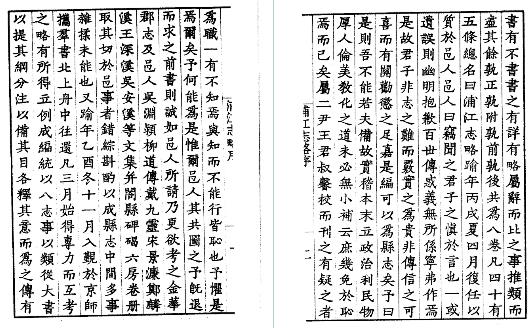 為職一有不知焉與知而不能行皆恥也予懼是
焉爾矣予何能為是惟爾邑人其共圖之予既退
而求之前書則誠如邑人所請乃更欲考之金華
郡志及邑人吳淵穎柳道傳戴九靈宋景濂鄭
溪王深吳安溪等文集并閤縣碑碣六房卷冊
取其切於邑事者錯綜斟酌以成縣志中間多事
雜揉未能也又踰年乙酉冬十一月入覲於京師
攜羣書北上舟中往還凡三月始得專力而互考
之略有所得立例成編統以八志事以類後大書
以提其綱分注以備其目各釋其意而為之傳有
浦江志略序
書有不書書之有詳有略屬辭而比之事推類而
盡其餘孰正孰附孰前孰後共為八卷凡四十有
五條總名曰浦江志略踰年丙戌夏四月復任以
質於邑人邑人曰竊聞之君子之慎於言也一或
遺誤則幽明抱歉百世傳惑義無所係寧弗作焉
是故君子非志之難而嚴實之為貴非傳信之可
喜而有關勸懲之足嘉是編可以為縣志矣予曰
是則吾不能若夫備故實稽本末立政治利民物
厚人倫美教化之道未必無小補云庶幾免於恥
焉而已矣屬二尹王君叔校而刊之有疑之者
浦江志略序